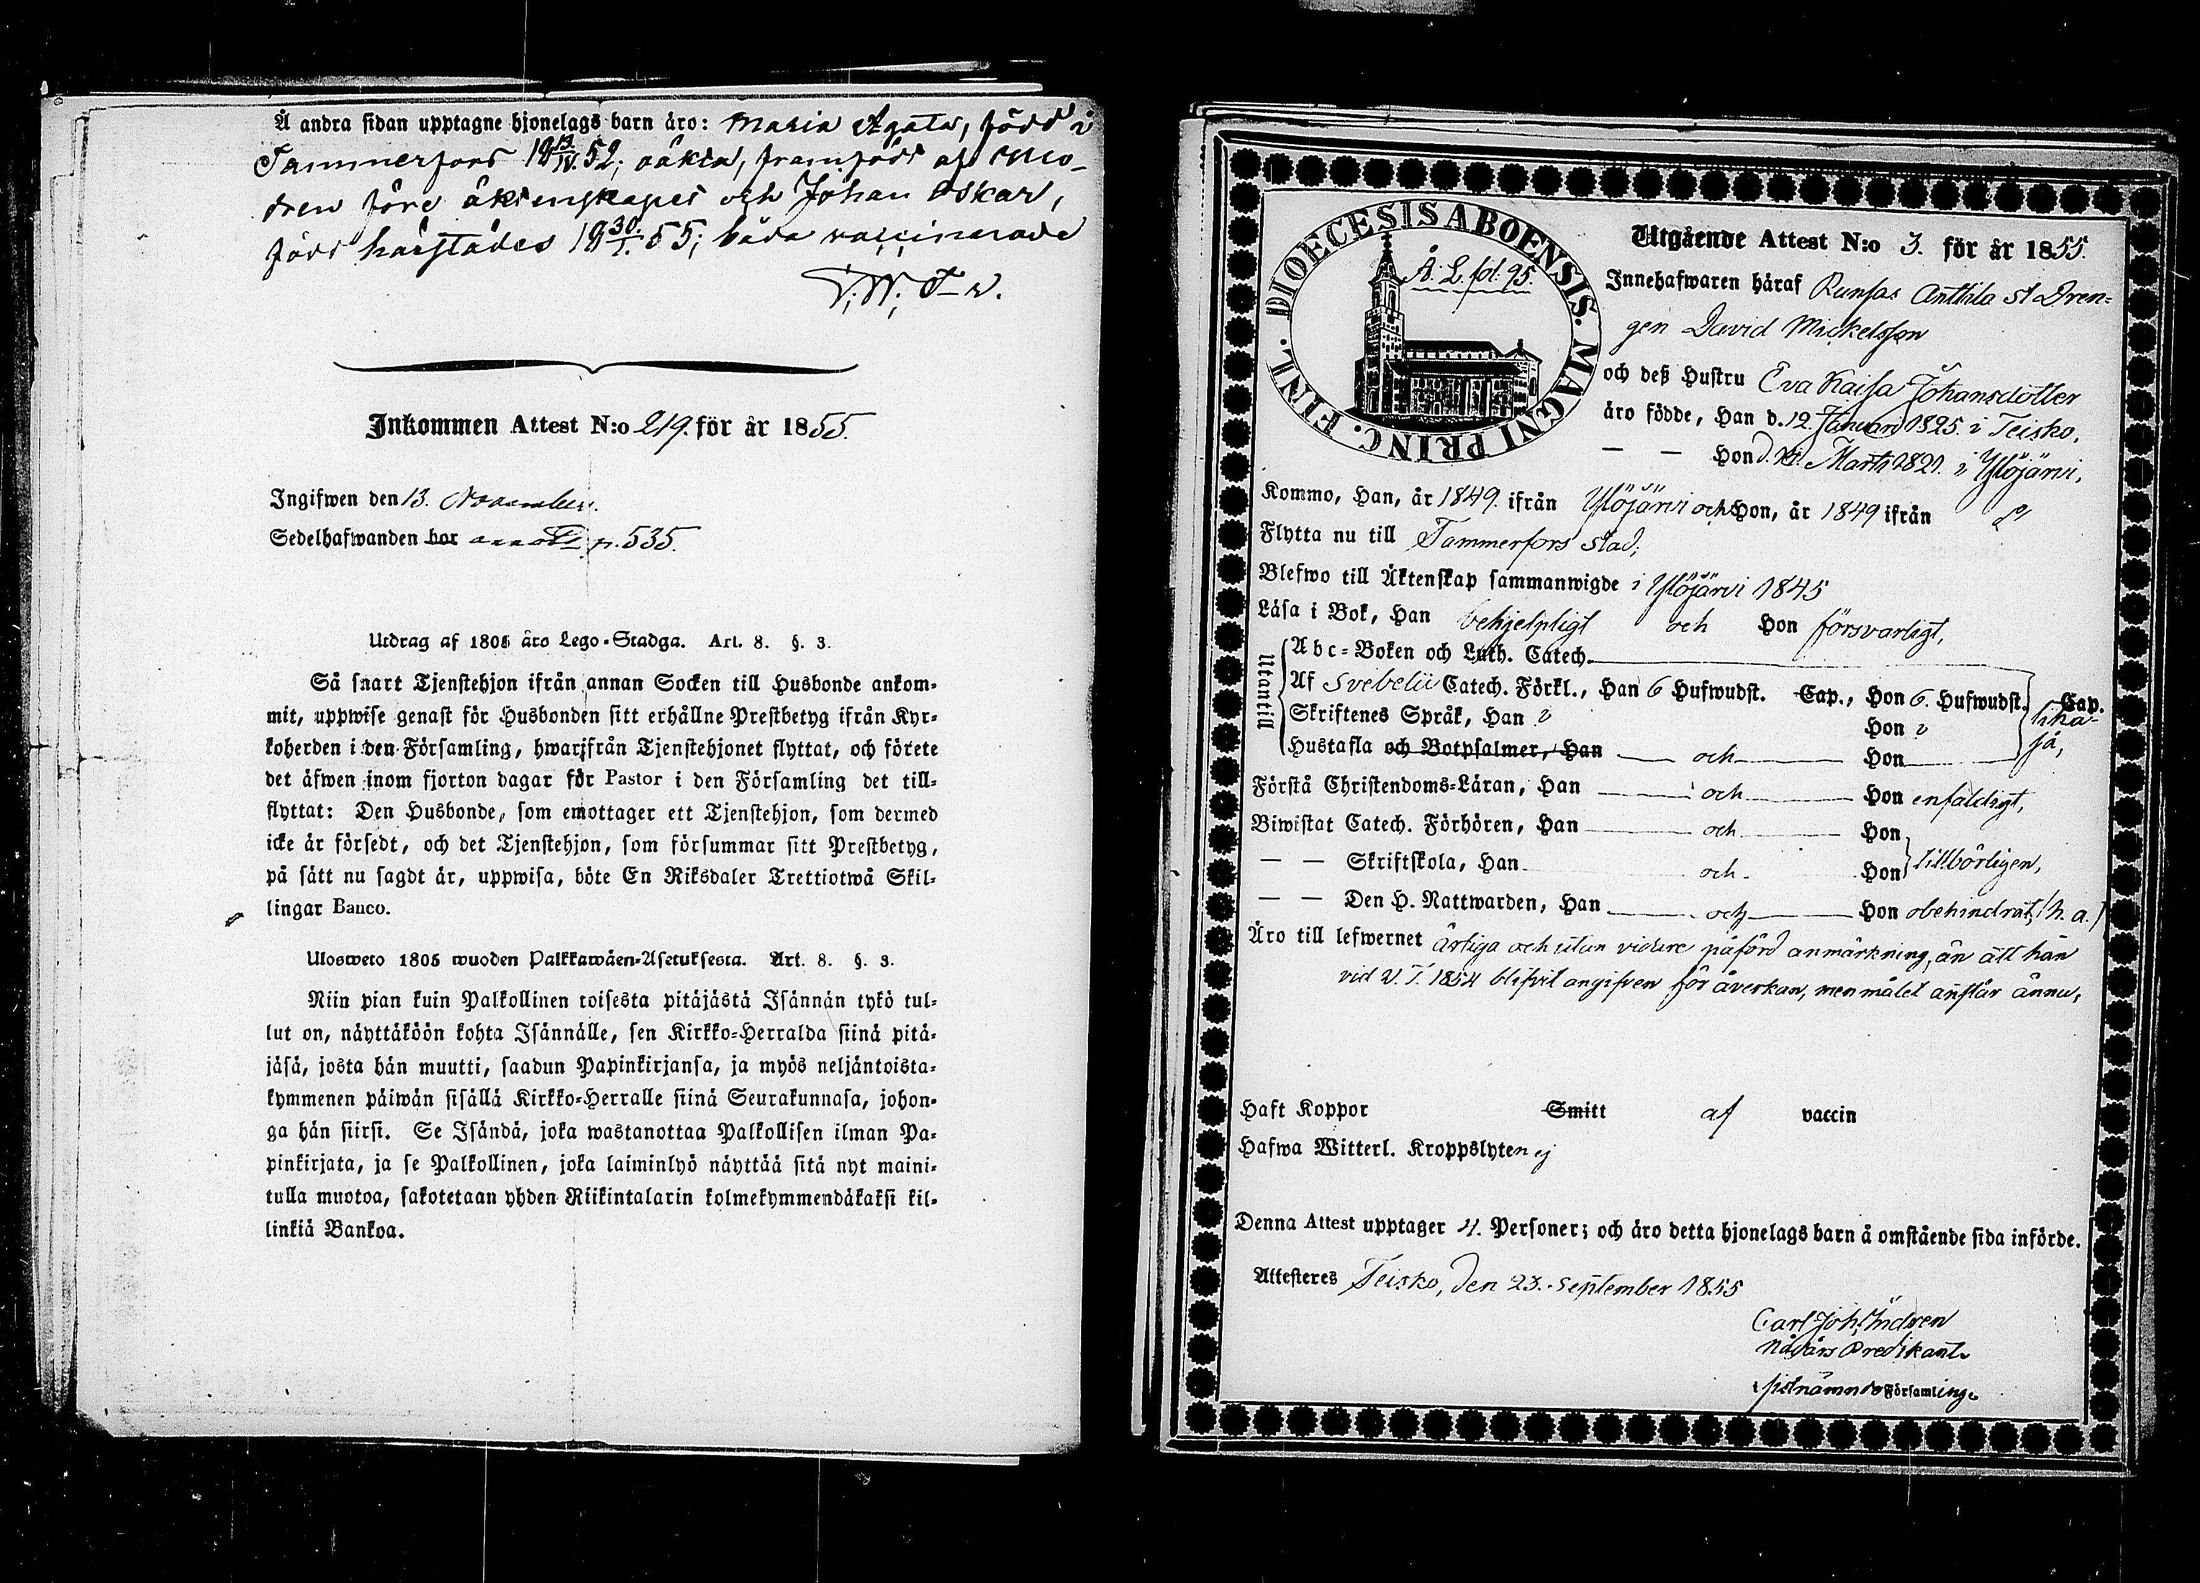 Å andra sidan upptagne hjonelags barn äro: Maria Agata, född i
Tammerfors 18 13/IV. 52; oäkta, framfödt af Mo-
dren före äktenskapet och Johan Oskar,
född härstädes 18 30/I. 55; båda vaccinerade
Inkommen Attest N:o 219. för år 1855.
Ingifwen den 13. November.
Sedelhafwanden bor p. 535.
Utdrag af 1805 års Lego-Stadga. Art. 8. §. 3.
Så snart Tjenstehjon ifrån annan Socken till Husbonde ankom-
mit, uppwise genast för Husbonden sitt erhållne Prestbetyg ifrån Kyr-
koherden i den Församling, hwarifrån Tjenstehjonet flyttat, och förete
det äfwen inom fjorton dagar för Pastor i den Församling det till-
flyttat: Den Husbonde, som emottager ett Tjenstehjon, som dermed
icke är försedt, och det Tjenstehjon, som försummar sitt Prestbetyg,
på sätt nu sagdt är, uppwisa, böte En Riksdaler Trettiotwå Skil-
lingar Banco.
Ulosweto 1805 wuoden Palkkawäen-Asetuksesta. Art. 8. §. 3.
Niin pian kuin Palkollinen toisesta pitäjästä Isännän tykö tul-
lut on, näyttäköön kohta Isännälle, sen Kirkko-Herralda siinä pitä-
jäsä, josta hän muutti, saadun Papinkirjansa, ja myös neljäntoista-
kymmenen päiwän sisällä Kirkko-Herralle siinä Seurakunnasa, johon-
ga hän siirsi. Se Isändä, joka wastanottaa Palkollisen ilman Pa-
pinkirjata, ja se Palkollinen, joka laiminlyö näyttää sitä nyt maini-
tulla muotoa, sakotetaan yhden Riikintalarin kolmekymmendäkaksi kil-
linkiä Bankoa.
DIOECESIS ABOENSIS. MAGNI PRINC. FINL.
Å. L. fol. 95.
Utgående Attest N:o 3. för år 1855.
Innehafwaren häraf Runsas Anttila st Dren-
gen David Mickelsson
och deß Hustru Eva Kaisa Johansdotter
äro födde, Han d. 12. Januari 1825. i Teisko.
— — Hon d. Marti 1821. i Ylöjärvi,
Kommo, Han, år 1849. ifrån Ylöjärvi och Hon, år 1849 ifrån
Flytta nu till Tammerfors stad;
Blefwo till Äktenskap sammanwigde i Ylöjärvi 1845
Läsa i Bok, Han behjelpligt och Hon försvarligt,
Utantill
Abc-Boken och Luth. Catech.
Af Svebelii Catech. Förkl., Han 6 Hufwudst. Cap., Hon 6. Hufwudst. Cap.
Skriftenes Språk, Han Hon lika-
Hustafla och Botpsalmer, Han — och — Hon så,
Förstå Christendoms-Läran, Han — och — Hon enfaldigt,
Biwistat Catech. Förhören, Han — och — Hon
— — Skriftskola, Han och Hon tillbörligen,
— — Den H. Nattwarden, Han — och — Hon obehindrat, /h. a./
Äro till lefwernet ärliga och utan vidare påförd anmärkning, än att han
vid V. T. 1854 blifvit angifven för åverkan, men målet anstår ännu,
Haft Koppor Smitt af vaccin
Hafwa Witterl. Kroppslyten ej
Denna Attest upptager 4. Personer; och äro detta hjonelags barn å omstående sida införde.
Attesteres Teisko, den 23. September 1855
Carl Joh. Indren
Nådårs Predikant
sistnämnde Församling.